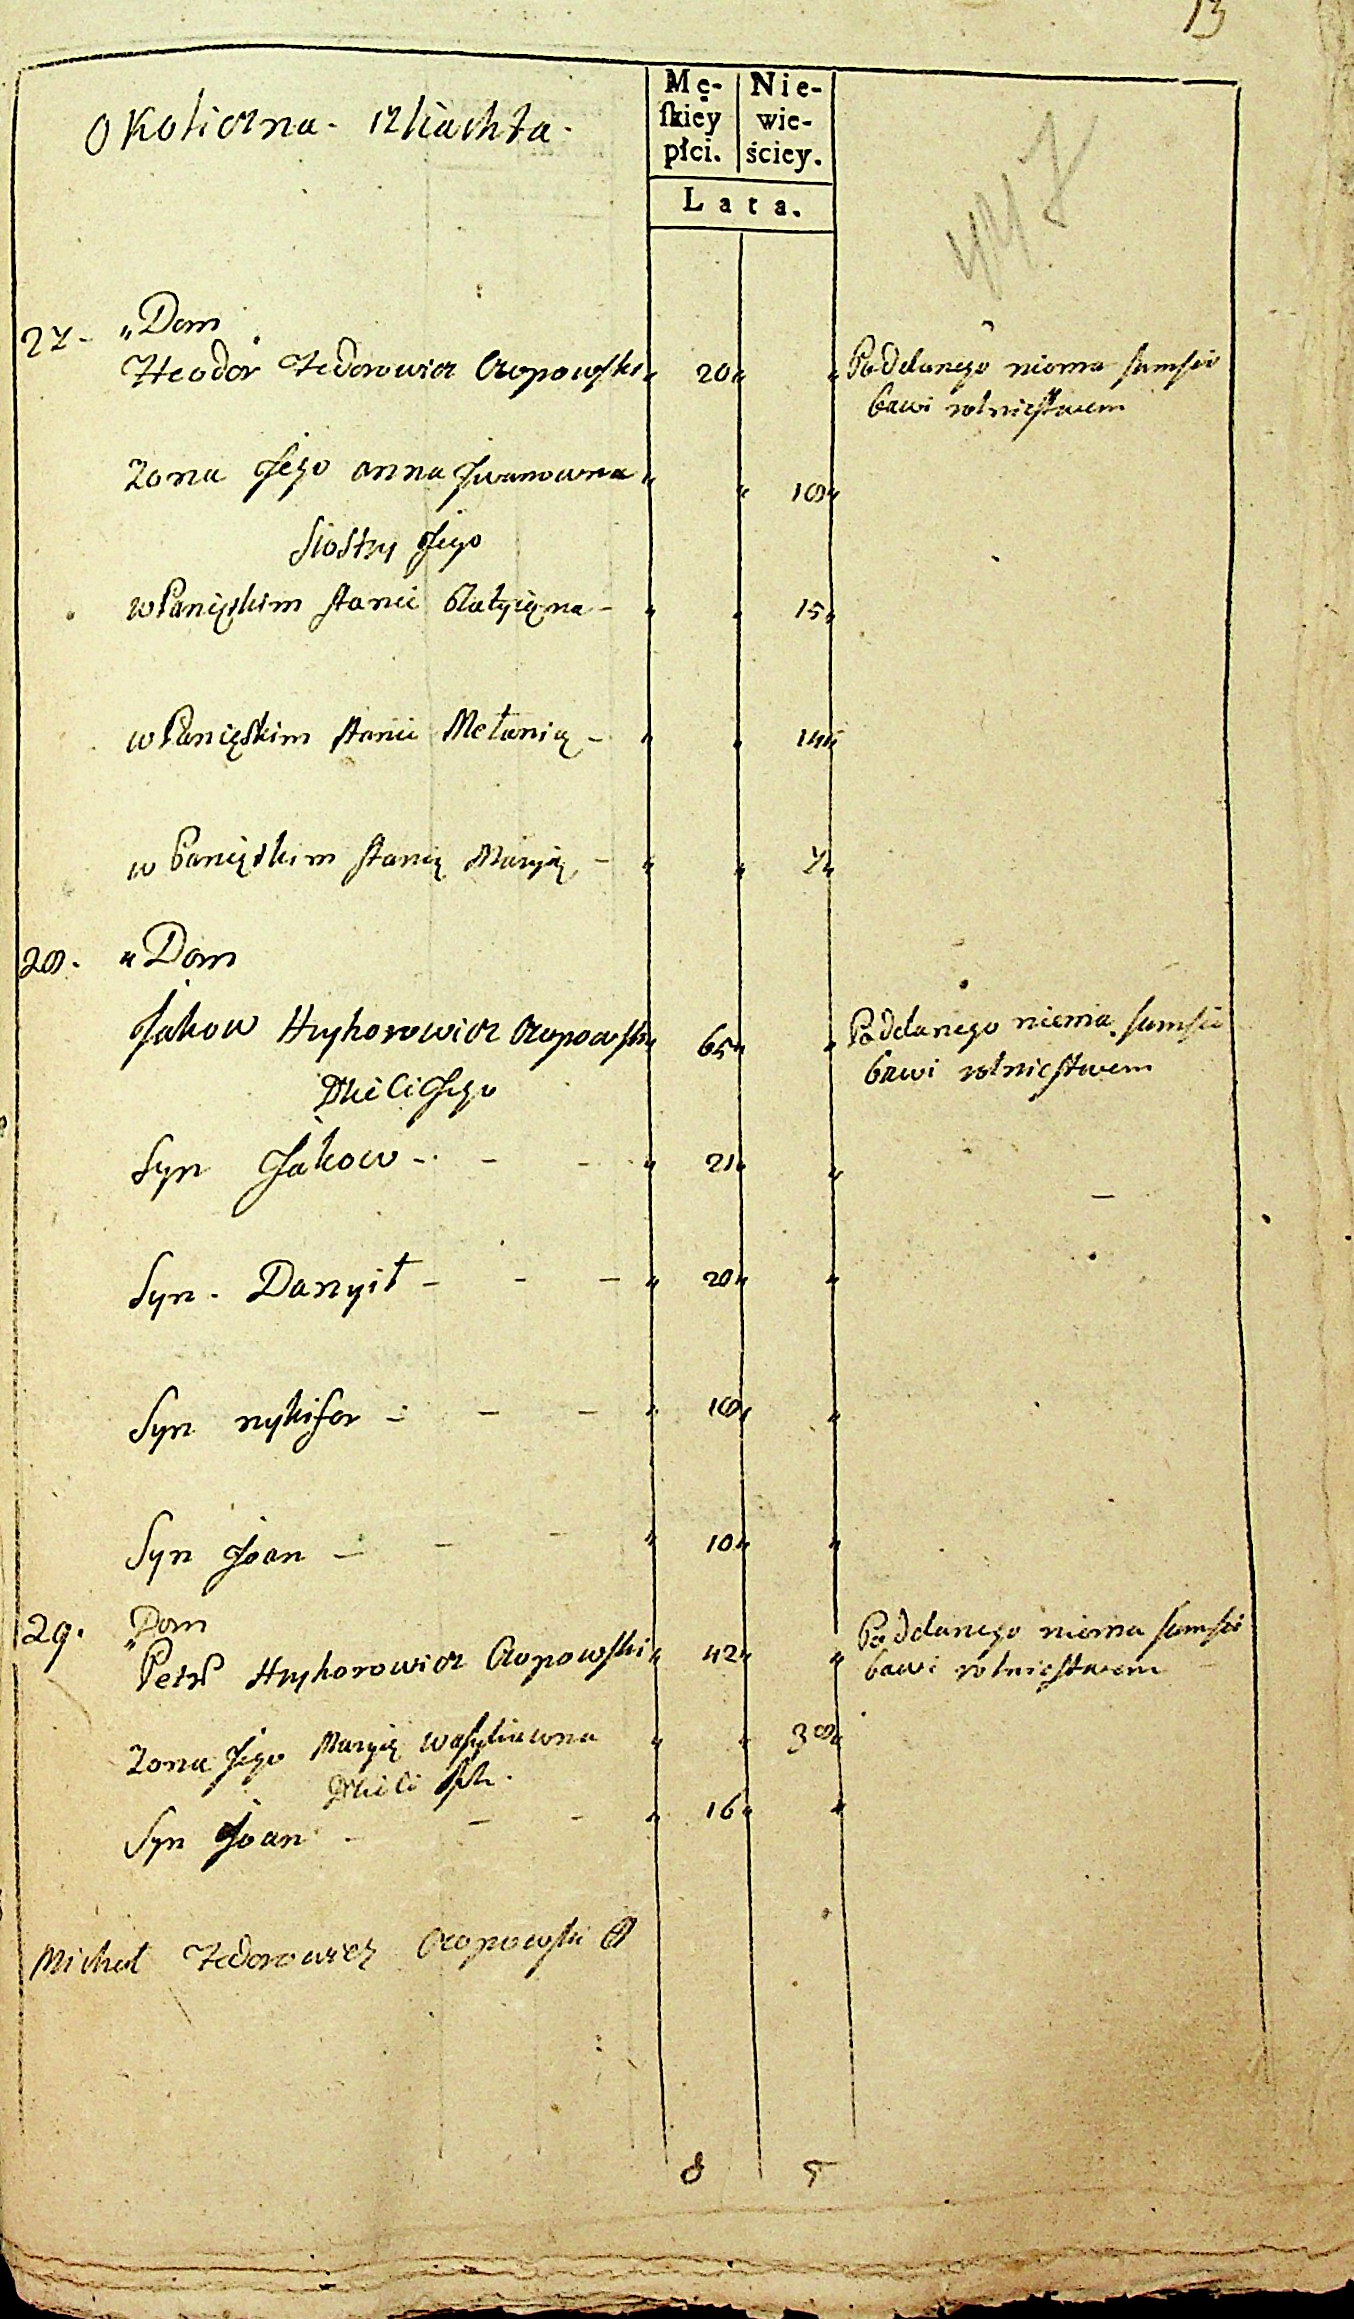 13
Okoliczna szliachta
Mę-
skiey
płci.
Nie-
wie-
ściey.
Lata.
447
27. „Dom
Tteodor Fedorowicz Czopowski 20 Poddanego niema sam sie
bawi rolnictwem
Zona Jego anna Jwanowna 18
Siostry Jego
w Panięskim stanie 15
w Panięskim stanie Mełanią 14
w Panięskim stanię Maryię 7
28. „Dom
Jakow Hryhorowicz Czopowski 65 Poddanego niema sam sie
bawi rolnictwem
Dzieci Jego
Syn Jakow 21
Syn Danyił 20
Syn nykifor 18
Syn Joan 10
29. „Dom
Petro Hryhorowicz Czopowski 42 Poddanego niema sam sie
bawi rolnictwem
Zona Jego Maryię wasyliawna 38
Dzieci Jch
Syn Joan 16
Michał Fedorowicz Czopowski
8 5